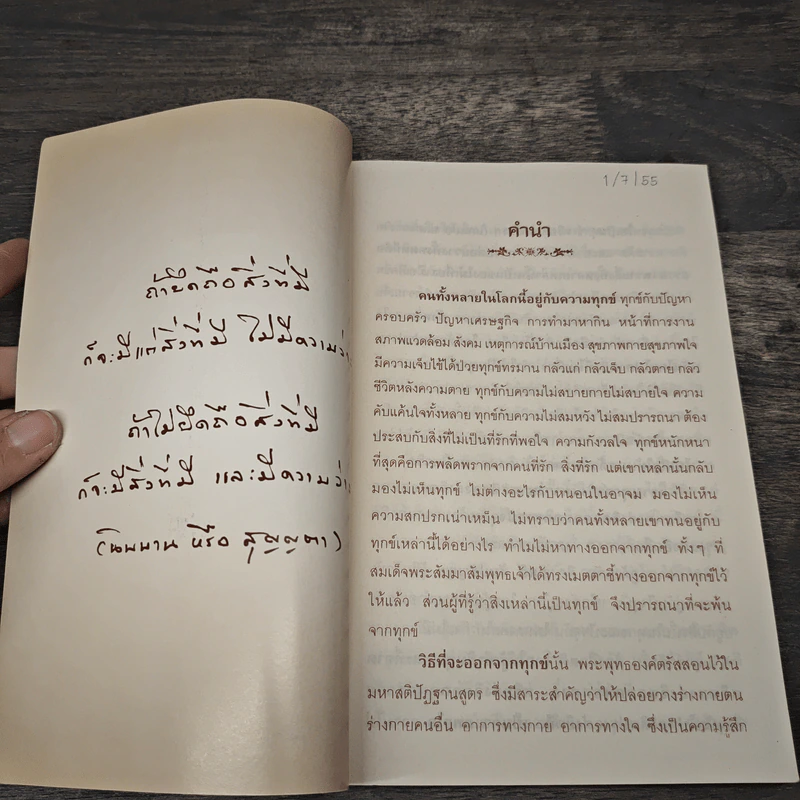 ถ้ายึดถือสิ่งที่มี
ก็จะมีแต่สิ่งที่มี ไม่มีความว่า
ถ้าไม่ยึดถือสิ่งที่มี
ก็จะมีสิ่งที่มี และมีความว่า
(นิพพาน หรือ สุญญตา)
1/7/55
คำนำ
คนทั้งหลายในโลกนี้อยู่กับความทุกข์ ทุกข์กับปัญหา
ครอบครัว ปัญหาเศรษฐกิจ การทำมาหากิน หน้าที่การงาน
สภาพแวดล้อม สังคม เหตุการณ์บ้านเมือง สุขภาพกายสุขภาพใจ
มีความเจ็บไข้ได้ป่วยทุกข์ทรมาน กลัวแก่ กลัวเจ็บ กลัวตาย กลัว
ชีวิตหลังความตาย ทุกข์กับความไม่สบายกายไม่สบายใจ ความ
คับแค้นใจทั้งหลาย ทุกข์กับความไม่สมหวัง ไม่สมปรารถนา ต้อง
ประสบกับสิ่งที่ไม่เป็นที่รักที่พอใจ ความกังวลใจ ทุกข์หนักหนา
ที่สุดคือการพลัดพรากจากคนที่รัก สิ่งที่รัก แต่เขาเหล่านั้นกลับ
มองไม่เห็นทุกข์ ไม่ต่างอะไรกับหนอนในอาจม มองไม่เห็น
ความสกปรกเน่าเหม็น ไม่ทราบว่าคนทั้งหลายเขาทนอยู่กับ
ทุกข์เหล่านี้ได้อย่างไร ทำไมไม่หาทางออกจากทุกข์ ทั้งๆ ที่
สมเด็จพระสัมมาสัมพุทธเจ้าได้ทรงเมตตาชี้ทางออกจากทุกข์ไว้
ให้แล้ว ส่วนผู้ที่รู้ว่าสิ่งเหล่านี้เป็นทุกข์ จึงปรารถนาที่จะพ้น
จากทุกข์
วิธีที่จะออกจากทุกข์นั้น พระพุทธองค์ตรัสสอนไว้ใน
มหาสติปัฏฐานสูตร ซึ่งมีสาระสำคัญว่าให้ปล่อยวางร่างกายตน
ร่างกายคนอื่น อาการทางกาย อาการทางใจ ซึ่งเป็นความรู้สึก